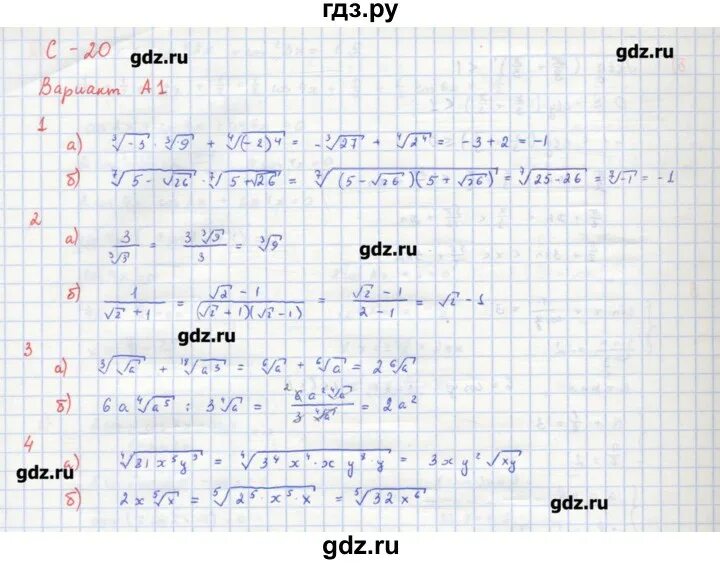 гдз.ру
С - 20
gdz.ru
gdz.ru
Вариант А1
1
а) ∛-3 · ∛9 + ∜(-2)⁴ = -∛27 + ∜2⁴ = -3+2 = -1
б) ⁷√5-√26 · ⁷√5+√26 = ⁷√(5-√26)(5+√26) = ⁷√25-26 = ⁷√-1 = -1
2
а) 3/∛3 = 3∛9/3 = ∛9
gdz.ru
б) 1/(√2 + 1) = (√2 - 1)/((√2+1)(√2-1)) = (√2 - 1)/(2 - 1) = √2 - 1
gdz.ru
3
а) ∛√a + ¹⁸√a³ = ⁶√a + ⁶√a = 2 ⁶√a
б) 6a∜a⁵ : 3∜a = 6a²∜a/3∜a = 2a²
4
а) ∜81x⁵y⁹ = ∜3⁴x⁴·x y⁸·y = 3xy²√xy
gdz.ru
б) 2x ⁵√x = ⁵√2⁵·x⁵·x = ⁵√32x⁶
gdz.ru
gdz.ru